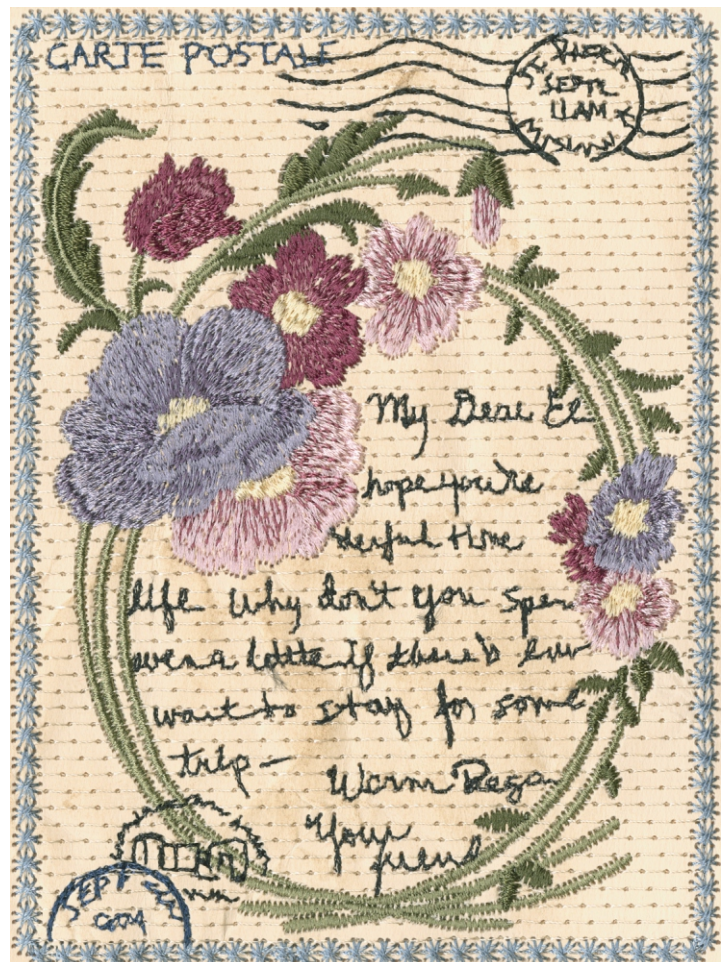 CARTE POSTALE
SEPT 2
11AM
My Dear El
hope you're
derful time
life Why don't you spen
a lette if there's
want to stay for some
trip —
Warm Rega
Your
friend
SEPT